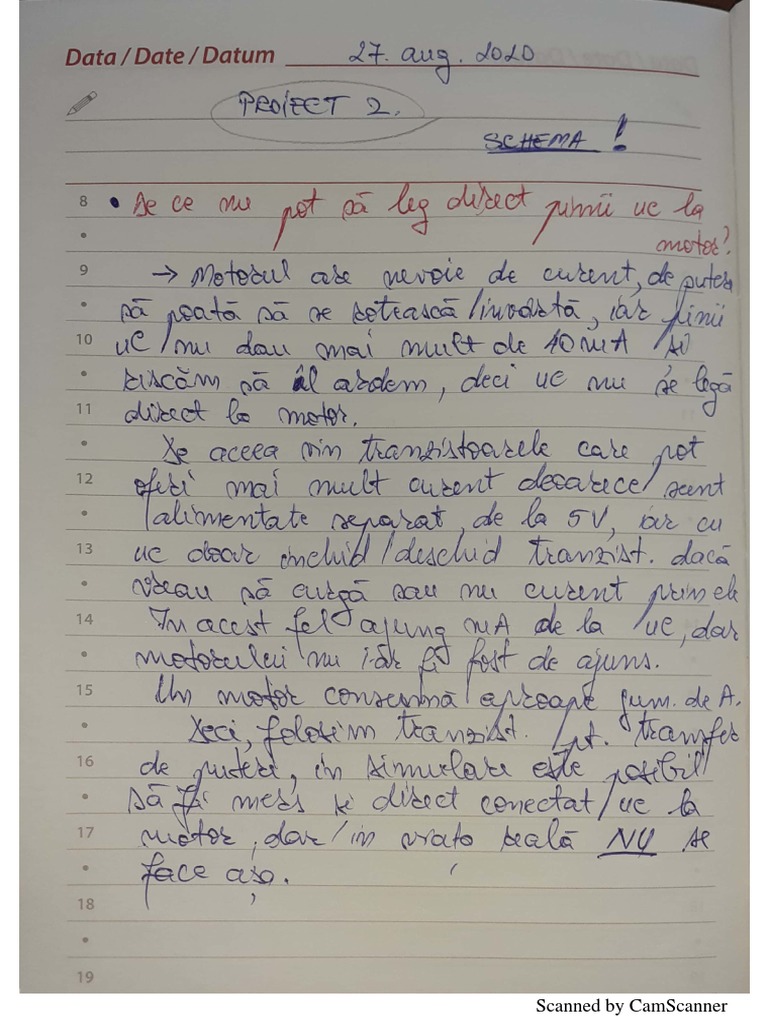 Data / Date / Datum 27. aug. 2020
PROIECT 2.
SCHEMA!
8 • De ce nu pot să leg direct pinii uc la
motor?
9 → Motorul are nevoie de curent, de putere
să poată să se rotească/învârtă, iar pinii
10 uC nu dau mai mult de 40mA și
riscăm să îl ardem, deci uc nu se legă
11 direct la motor.
De aceea vin tranzistoarele care pot
12 oferi mai mult curent deoarece sunt
alimentate separat, de la 5V, iar cu
13 uc doar închid/deschid tranzist. dacă
vreau să curgă sau nu curent prin ele
14 În acest fel ajung mA de la uc, dar
motorului nu i-ar fi fost de ajuns.
15 Un motor consumă aproape jum. de A.
Deci, folosim tranzist. pt. transfer
16 de puteri, în simulare este posibil
să fi mers și direct conectat uc la
17 motor, dar în viața reală NU se
face așa.
18
19
Scanned by CamScanner